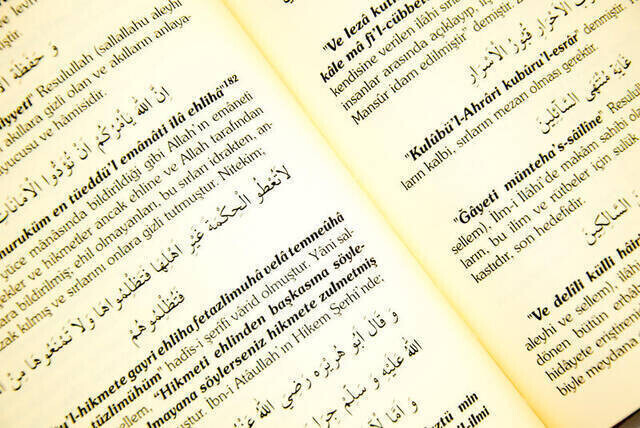 ve levi
aleyhi
akılların anlaya-
وَ حَفَظَةِ
ilyyeti" Resulullah (sallallahu aleyhi
akıllara gizli olan ve akılların anlaya-
uyucusu ve hâmisidir.
اِنَّ اللّٰهَ يَأْمُرُكُمْ اَنْ تُؤَدُّوا الْاَمَانَاتِ
nuruküm en tüeddü'l emânâti ilâ ehlihâ"182
yüce mânâsında bildirildiği gibi Allah'ın emâneti
ekler ve hikmetler ancak ehline ve Allah tarafından
ara bildirilmiş; ehil olmayanları, bu sırları idrakten, an-
zak kılmış ve sırlarını onlara gizli tutmuştur. Nitekim;
لَا تُعْطُو الْحِكْمَةَ غَيْرَ اَهْلِهَا فَتَظْلِمُوهَا وَلَا تَمْنَعُوهَا مِنْ
فَتَظْلِمُوهُمْ
u'l-hikmete gayri ehliha fetazlimuhâ velâ temneûhâ
tüzlimûhüm" hadis-i şerifi vârid olmuştur. Yâni sal-
sellem, "Hikmeti ehlinden başkasına söyle-
mayana söylerseniz hikmete zulmetmiş
muştur. İbn-i Atâullah'ın Hikem Şerhi'nde;
وَ قَالَ اَبُو هُرَيْرَهَ رَضِيَ اللّٰهُ
اللّٰهُ عَلَيْهِ وَ سَلَّمَ
وَ اَمَّا
"Ve lezâ kuli
kâle mâ fi'l-cübbe
kendisine verilen ilâhi sırı
insanlar arasında açıklayıp, il
Mansûr idam edilmiştir" demiştir. Z
الْاَحْرَارِ قُبُورُ الْاَسْرَارِ
"Kulûbü'l-Ahrâri kubûru'l-esrâr" denmiştir.
ların kalbi, sırların mezarı olması gerektir.
غَايَةِ مُنْتَهَى السَّائِلِينَ
"Gâyeti münteha's-sâilîne" Resulu
sellem), İlm-i İlâhi'de makam sahibi ol
ların, bu ilim ve rütbeler için sülük
kastıdır, son hedefidir.
السَّالِكِينَ
"Ve delili külli hâiri
aleyhi ve sellem), âlâ
dönen bütün erbab
hidâyete eriştiren
biyle meydana
öztü min
l-ilmi